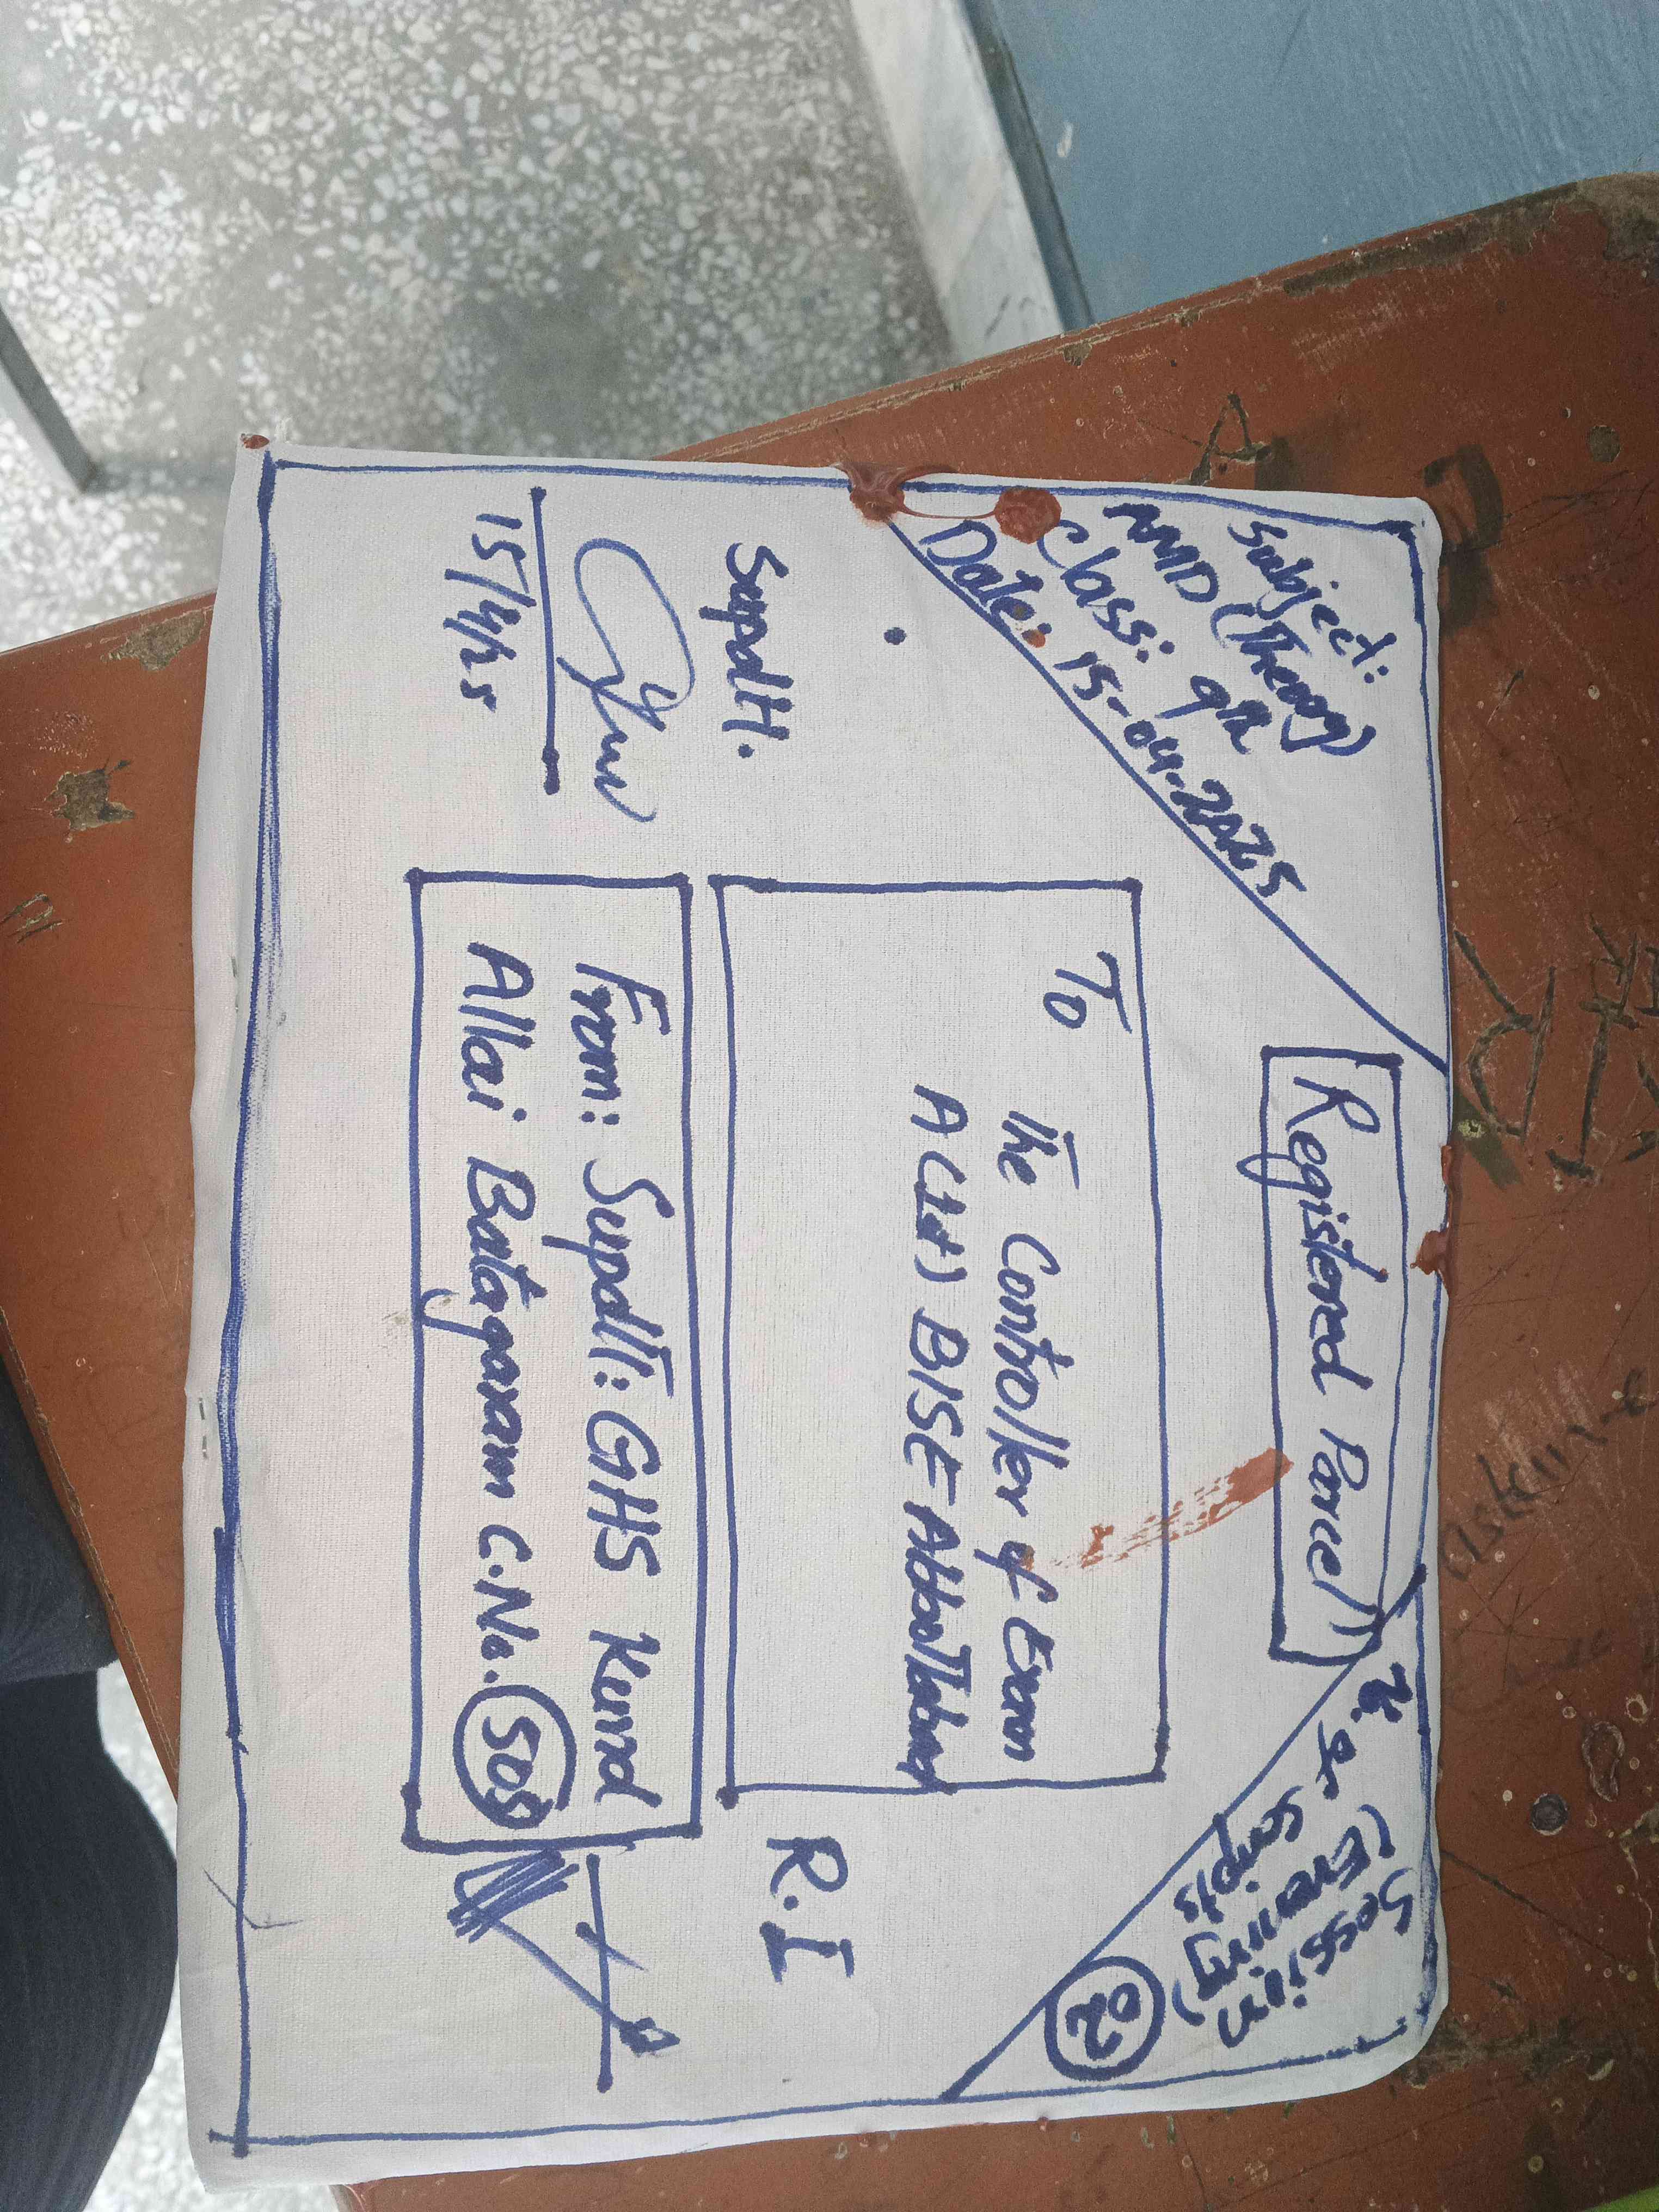 Subject:
AMD (Theory)
Class: 9th
Date: 15-04-2025
Registered Parcel
Session
(Evening)
Scripts
02
To
The Controller of Exam
A(Lst) BISE Abbottabad
From: Supdtt: GHS Kund
Allai Batagaram C.No. 508
Supdtt.
15/4/25
R.I